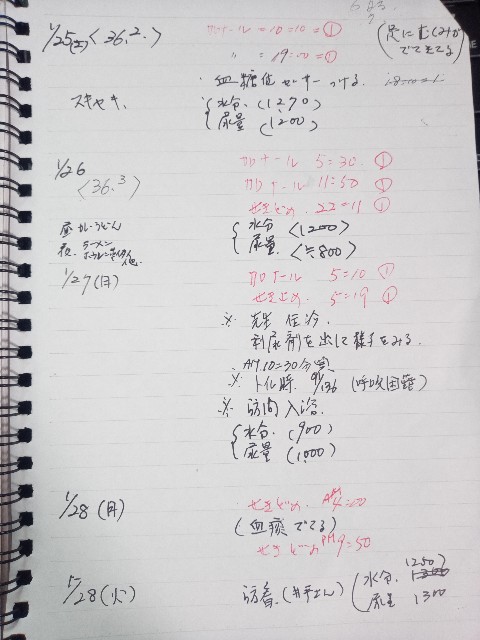 1/25(土)<36.2> カロナール=10=10=①
(足にむくみが
でてきてる)
〃 =19:00=①
・血糖値センサーつける
スキヤキ、 水分、(1270)
尿量 (1200)
1/26 カロナール 5=30. ①
<36.3> カロナール 11=50 ①
せきどめ. 22=11 ①
昼カレーうどん 水分 <1200>
夜、ラーメン 尿量. <≒800>
1/27(日) カロナール 5=10 ①
せき止め. 5=19 ①
※ 先生 往診.
利尿剤を出して様子をみる.
AM10=30分
※ トイレ時. (呼吸困難)
※ 訪問入浴
水分. (900)
尿量 (1000)
1/28(月) せきどめ. AM4=00
(血痰 でてる)
せきどめ PM9=50
1/28(火) 訪看. 水分. 1250
尿量 1300